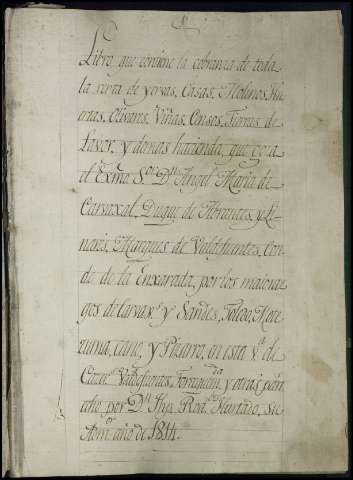 Libro que contiene la cobranza de toda
la renta de yervas, Casas, Molinos, Hu
ertas, Olivares, Viñas, Censos, Tierras de
Lavor, y demas hacienda, que goza
el Exmo. S.or D.n Angel Maria de
Carvaxal, Duque de Abrantes, y Li
nares, Marques de Valdefuentes, Con
de de la Enxarada, por los maioraz
gos de Carvax.l y Sandes, Toledo, Mote
zuma, Cano, y Pizarro, en esta V.a de
Cazer.s Valdefuentes, Torrequem.da y otras, p.a
año por D.n Hurtado, su
Adm.or año de 1814.